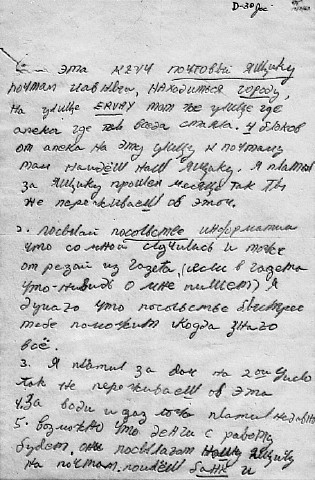 эта ключ почтовый ящику
почтам главный, находиться городу
на улице ERVAY том же улице где
апека где ты всегда стаяла. 4 блоков
от апека на эту улицу и почтаму
там найдёш наш ящику. Я платил
за ящику прошлой месяце так ты
не переживаеш об этом.
2. посылай посолвстве информатия
что со мной случилась и тоже
отрезай из газета, (если в газета
что-нибудь о мне пишет) Я
думаго что посольстве быстрее
тебе поможит когда знаго
всё.
3. Я платил за дом на 2ого число
так не переживаеш об эта
4. За води и газ тоже платил недавно
5. возможно что деньги с работу
будет. они посылагат нашу ящику
на почтам. пойдёш банк и